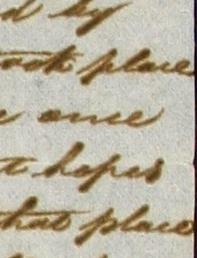 d by
took place
e once
t hopes
that place